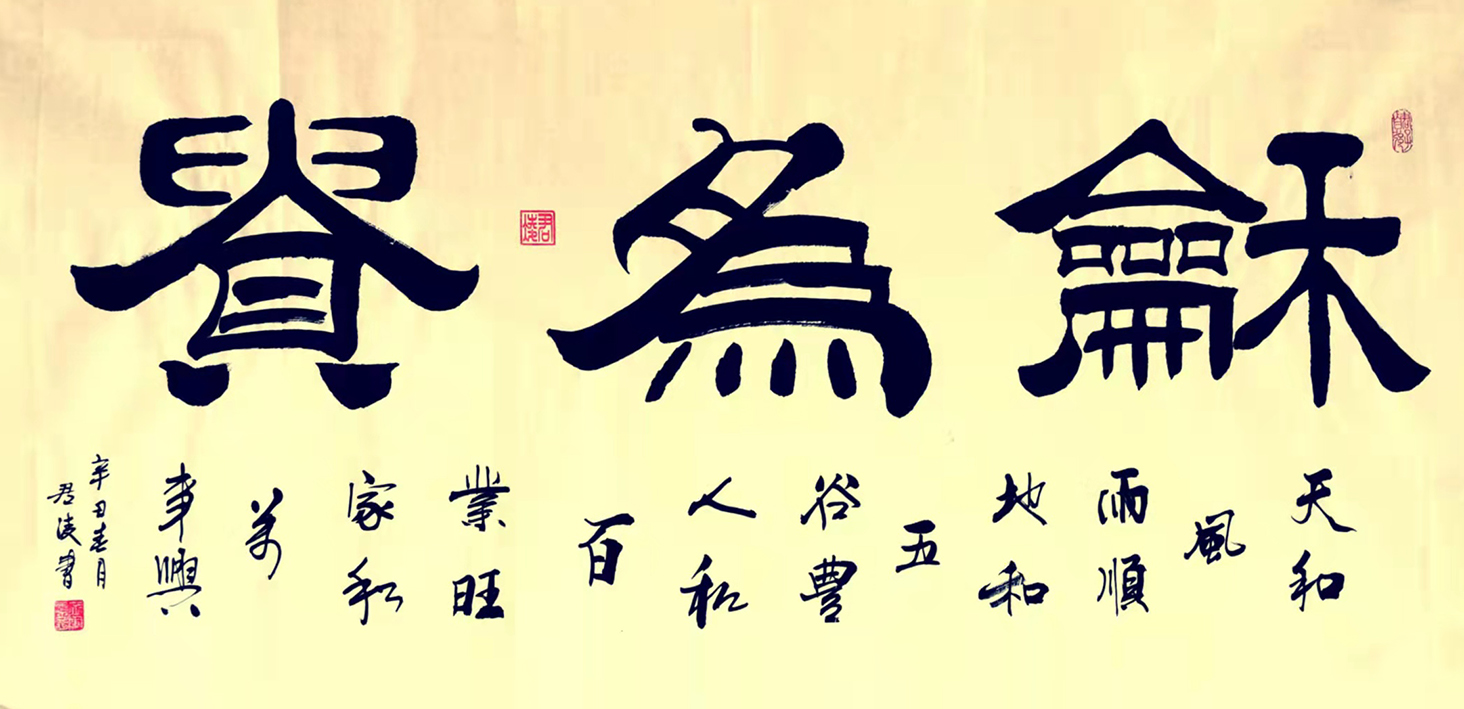 龢為貴
天和
風
雨順
地和
五
谷豐
人和
百
業旺
家和
萬
事興
辛丑春月
君陵書
君陵